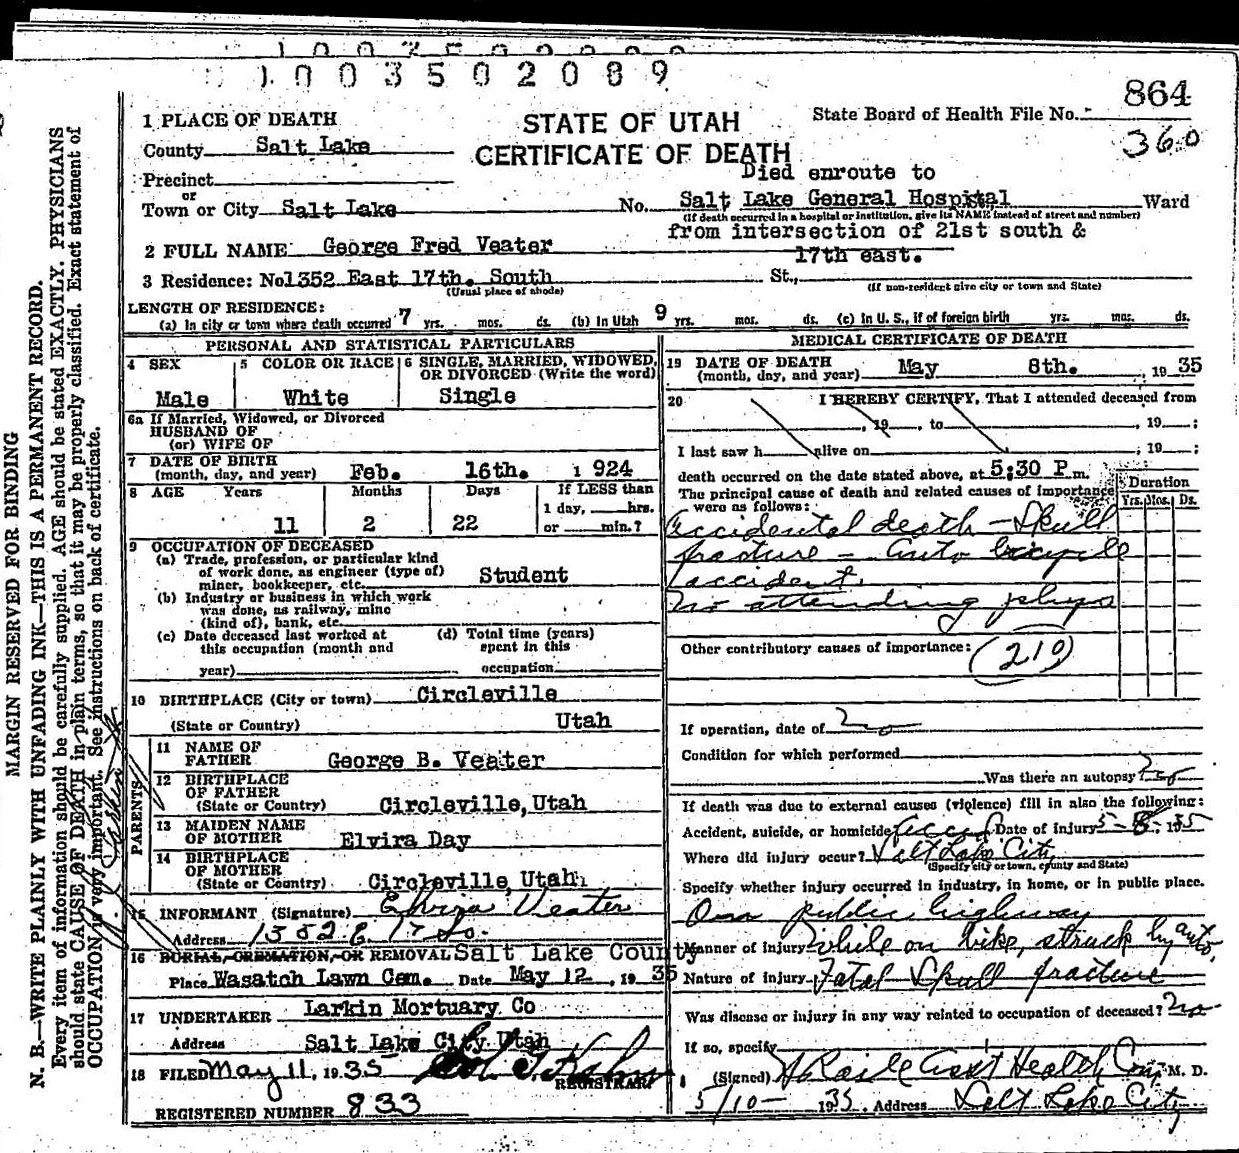 1003502089
864
360
STATE OF UTAH
CERTIFICATE OF DEATH
State Board of Health File No.
1 PLACE OF DEATH
County Salt Lake
Precinct
or
Town or City Salt Lake
Died enroute to
No. Salt Lake General Hospital Ward
(If death occurred in a hospital or institution, give its NAME instead of street and number)
from intersection of 21st south &
17th east.
2 FULL NAME George Fred Veater
3 Residence: No 1352 East 17th. South St.,
(Usual place of abode) (If non-resident give city or town and State)
LENGTH OF RESIDENCE:
(a) In city or town where death occurred 7 yrs. mos. ds. (b) In Utah 9 yrs. mos. ds. (c) in U. S., if of foreign birth yrs. mos. ds.
PERSONAL AND STATISTICAL PARTICULARS
4 SEX Male
5 COLOR OR RACE White
6 SINGLE, MARRIED, WIDOWED, OR DIVORCED (Write the word)
Single
6a If Married, Widowed, or Divorced
HUSBAND OF
(or) WIFE OF
7 DATE OF BIRTH
(month, day, and year) Feb. 16th. 1924
8 AGE Years Months Days If LESS than
1 day, hrs.
11 2 22 or min.?
9 OCCUPATION OF DECEASED
(a) Trade, profession, or particular kind
of work done, as engineer (type of)
miner, bookkeeper, etc. Student
(b) Industry or business in which work
was done, as railway, mine
(kind of), bank, etc.
(c) Date deceased last worked at
this occupation (month and
year)
(d) Total time (years)
spent in this
occupation
10 BIRTHPLACE (City or town) Circleville
(State or Country) Utah
PARENTS
11 NAME OF
FATHER George B. Veater
12 BIRTHPLACE
OF FATHER
(State or Country) Circleville, Utah
13 MAIDEN NAME
OF MOTHER Elvira Day
14 BIRTHPLACE
OF MOTHER
(State or Country) Circleville, Utah
15 INFORMANT (Signature) Elvira Veater
Address 1352 E. 17 So.
16 BURIAL, CREMATION, OR REMOVAL Salt Lake County
Place Wasatch Lawn Cem. Date May 12, 1935
17 UNDERTAKER Larkin Mortuary Co
Address Salt Lake City Utah
18 FILED May 11, 1935
REGISTRAR
REGISTERED NUMBER 833
MEDICAL CERTIFICATE OF DEATH
19 DATE OF DEATH
(month, day, and year) May 8th. , 1935
20 I HEREBY CERTIFY, That I attended deceased from
, 19 , to , 19 ;
I last saw h alive on , 19 ;
death occurred on the date stated above, at 5:30 P m.
The principal cause of death and related causes of importance
were as follows:
Duration
Yrs. Mos. Ds.
accidental death - Skull
fracture - auto bicycle
accident.
No attending phys
Other contributory causes of importance:
(210)
If operation, date of no
Condition for which performed
Was there an autopsy? no
If death was due to external causes (violence) fill in also the following:
Accident, suicide, or homicide? Date of injury 5-8-1935
Where did injury occur? Salt Lake City
(Specify city or town, county and State)
Specify whether injury occurred in industry, in home, or in public place.
On public highway
Manner of injury While on bike, struck by auto.
Nature of injury Fatal Skull fracture
Was disease or injury in any way related to occupation of deceased? no
If so, specify
(Signed) M. D.
5/10- 1935. Address Salt Lake City
MARGIN RESERVED FOR BINDING
N. B.—WRITE PLAINLY WITH UNFADING INK—THIS IS A PERMANENT RECORD.
Every item of information should be carefully supplied. AGE should be stated EXACTLY. PHYSICIANS
should state CAUSE OF DEATH in plain terms, so that it may be properly classified. Exact statement of
OCCUPATION is very important. See instructions on back of certificate.